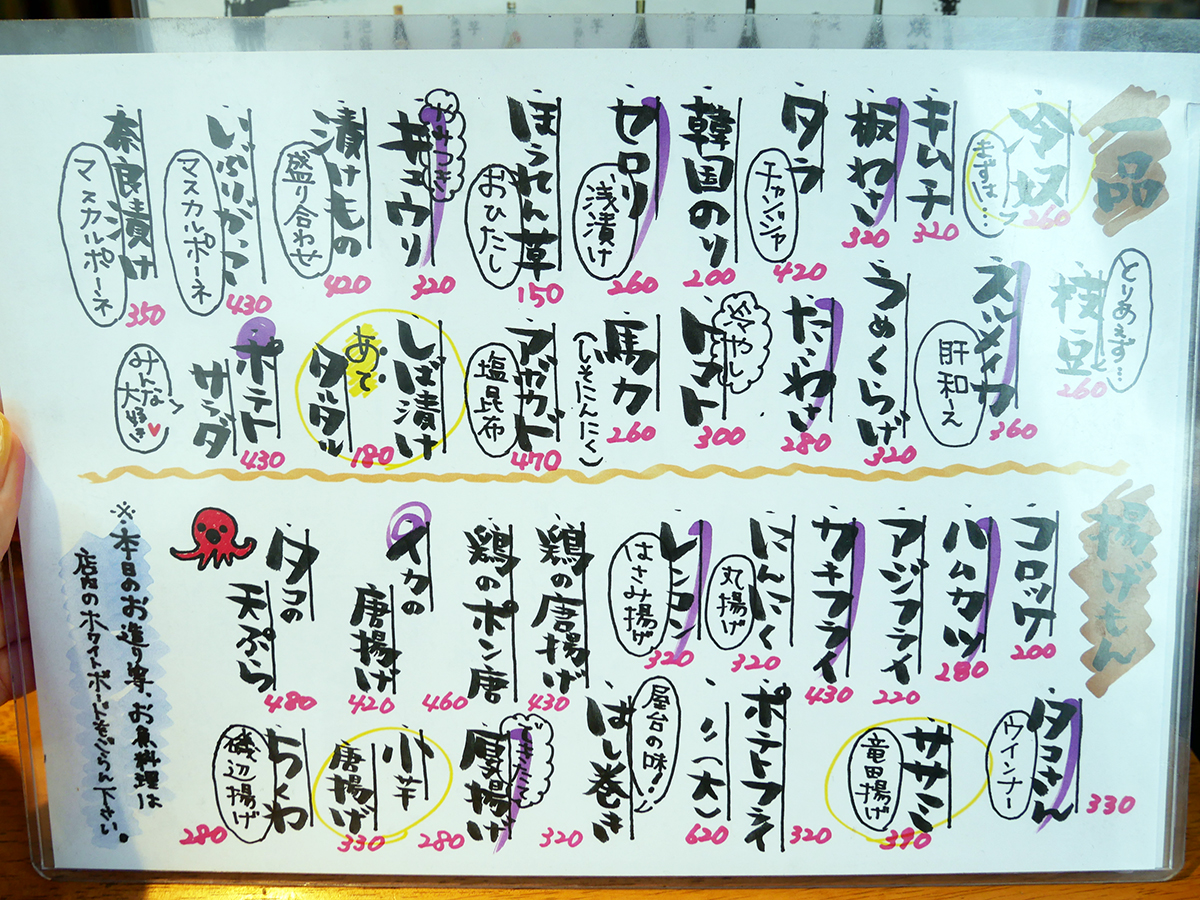 一品
冷奴
まずは…
260
キムチ
320
板わさ
320
タラ
チャンジャ
420
韓国のり
200
セロリ
浅漬け
260
ほうれん草
おひたし
150
キュウリ
320
漬けもの
盛り合わせ
420
いぶりがっこ
マスカルポーネ
430
奈良漬け
マスカルポーネ
350
とりあえず…
枝豆
260
スルメイカ
肝和え
360
うめくらげ
320
たこわさ
280
ひやし
トマト
300
馬力
(しそにんにく)
260
アボカド
塩昆布
470
しば漬け
あて
タルタル
180
ポテト
サラダ
みんな
大好き
430
揚げもん
コロッケ
200
ハムカツ
280
アジフライ
220
カキフライ
430
にんにく
丸揚げ
320
レンコン
はさみ揚げ
320
鶏の唐揚げ
430
鶏のポン唐
460
イカの
唐揚げ
420
タコの
天ぷら
480
タコさん
ウインナー
330
ササミ
竜田揚げ
390
ポテトフライ
320
〃(大)
620
屋台の味!!
はし巻き
320
できたて
厚揚げ
280
小芋
唐揚げ
330
ちくわ
磯辺揚げ
280
※本日のお造り等、お魚料理は
店内のホワイトボードをごらん下さい。